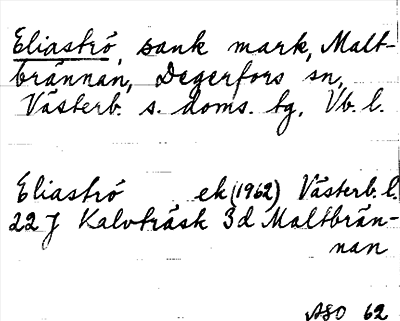 Eliaströ, sank mark, Malt-
brännan, Degerfors sn,
Västerb. s. doms. tg, Vb. l.
Eliaströ ek (1962) Västerb. l.
22 J Kalvträsk 3d Maltbrän-
nan
ASO 62